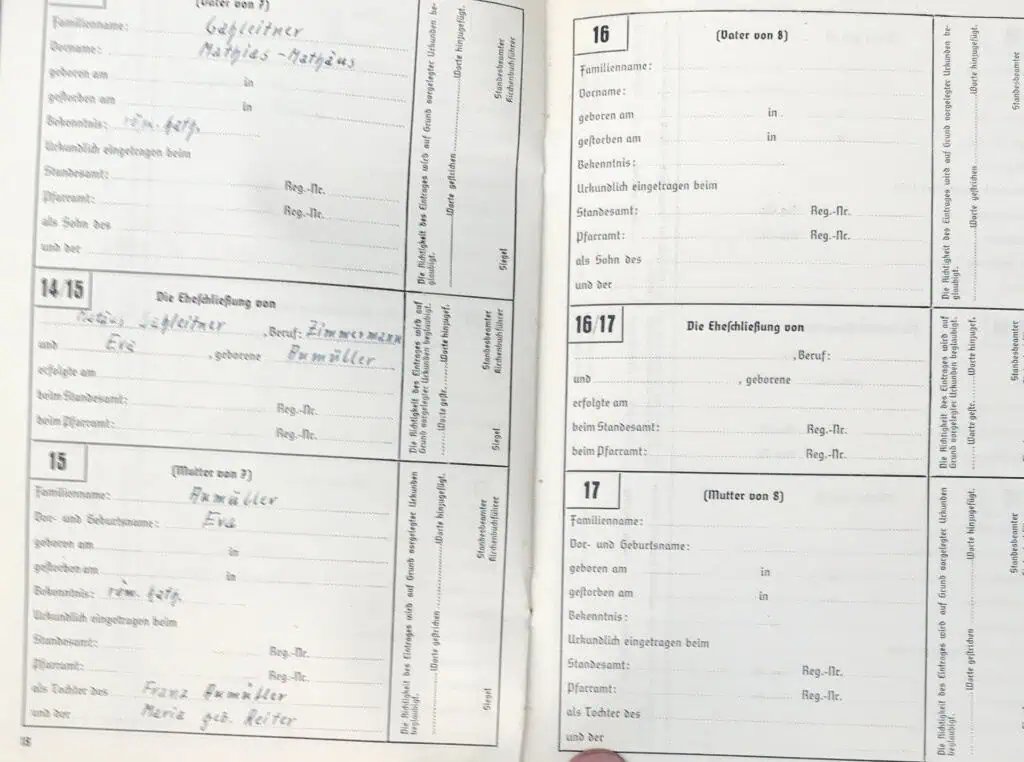 (Vater von 7)
Familienname: Gaßleitner
Vorname: Mathias-Mathäus
geboren am in
gestorben am in
Bekenntnis: röm. kath.
Urkundlich eingetragen beim
Standesamt: Reg.-Nr.
Pfarramt: Reg.-Nr.
als Sohn des
und der
Die Richtigkeit des Eintrages wird auf Grund vorgelegter Urkunden beglaubigt. Worte gestrichen Worte hinzugefügt.
Siegel Standesbeamter Kirchenbuchführer
14/15 Die Eheschließung von
Gaßleitner, Beruf: Zimmermann
und Eva, geborene Aumüller
erfolgte am
beim Standesamt: Reg.-Nr.
beim Pfarramt: Reg.-Nr.
Die Richtigkeit des Eintrages wird auf Grund vorgelegter Urkunden beglaubigt. Worte gestr. Worte hinzugef.
Siegel Standesbeamter Kirchenbuchführer
15 (Mutter von 7)
Familienname: Aumüller
Vor- und Geburtsname: Eva
geboren am in
gestorben am in
Bekenntnis: röm. kath.
Urkundlich eingetragen beim
Standesamt: Reg.-Nr.
Pfarramt: Reg.-Nr.
als Tochter des Franz Aumüller
und der Maria geb. Reiter
Die Richtigkeit des Eintrages wird auf Grund vorgelegter Urkunden beglaubigt. Worte gestrichen Worte hinzugefügt.
Siegel Standesbeamter Kirchenbuchführer
18
16 (Vater von 8)
Familienname:
Vorname:
geboren am in
gestorben am in
Bekenntnis:
Urkundlich eingetragen beim
Standesamt: Reg.-Nr.
Pfarramt: Reg.-Nr.
als Sohn des
und der
Die Richtigkeit des Eintrages wird auf Grund vorgelegter Urkunden beglaubigt. Worte gestrichen Worte hinzugefügt.
Standesbeamter
16/17 Die Eheschließung von
, Beruf:
und , geborene
erfolgte am
beim Standesamt: Reg.-Nr.
beim Pfarramt: Reg.-Nr.
Die Richtigkeit des Eintrages wird auf Grund vorgelegter Urkunden beglaubigt. Worte gestr. Worte hinzugef.
Standesbeamter
17 (Mutter von 8)
Familienname:
Vor- und Geburtsname:
geboren am in
gestorben am in
Bekenntnis:
Urkundlich eingetragen beim
Standesamt: Reg.-Nr.
Pfarramt: Reg.-Nr.
als Tochter des
und der
Die Richtigkeit des Eintrages wird auf Grund vorgelegter Urkunden beglaubigt. Worte gestrichen Worte hinzugefügt.
Standesbeamter